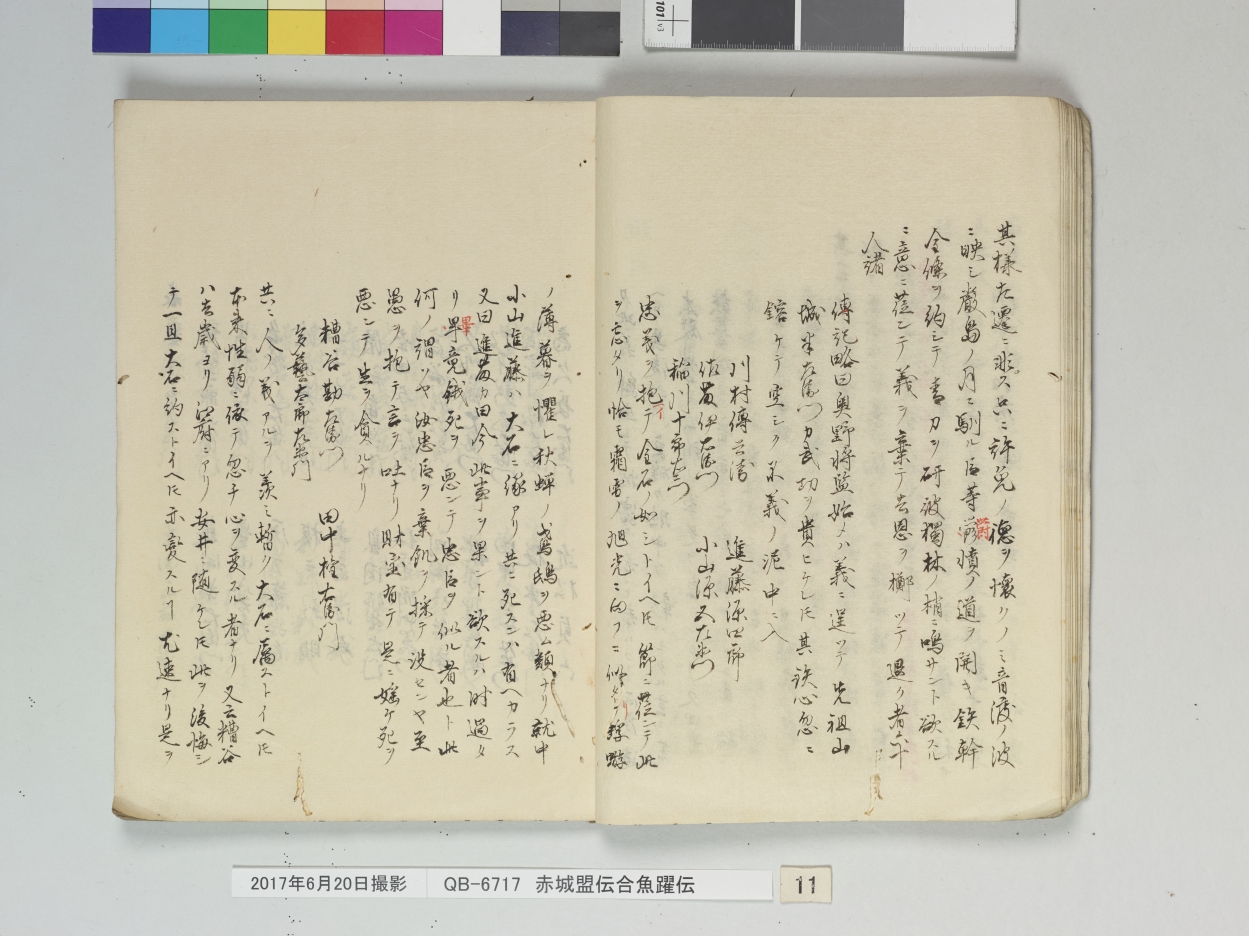 其様左遷ニ非ス只ニ許免ノ徳ヲ懐クノミ音渡ノ波
ニ映シ厳島ノ月ニ馴ル臣等欝憤ノ道ヲ開キ鉄幹
金條ヲ約シテ青刀ヲ研彼獨林ノ梢ニ鳴サント欲スル
ニ意ニ莅シテ義ヲ棄テ古恩ヲ擲ツテ退ク者六十
人諸
傳記略曰奥野将監始メハ義ニ逞ツテ先祖山
城半左衛門カ武功ヲ貴ヒケレ𪜈其鉄心忽ニ
鎔ケテ空シク不義ノ泥中ニ入
川村傳兵衛 進藤源四郎
佐藤伊右衛門 小山源五左衛門
稲川十郎右衛門
忠義ヲ抱テ金石ノ如シトイヘ𪜈節ニ莅ンテ此
ヲ忘タリ恰モ霜雪ノ旭光ニ向フニ似タリ蜉蝣
ノ薄暮ヲ懼レ秋蝉ノ鳶鴟ヲ悪ム類ナリ就中
小山進藤ハ大石ニ縁アリ共ニ死スンハ有ヘカラス
又曰進藤カ曰今此事ヲ果ント欲スルハ時過タ
リ畢竟餓死ヲ悪ンテ忠臣ヲ似ル者也ト此
何ノ謂ソヤ汝忠臣ヲ棄飢ヲ採テ没センヤ至
愚ヲ抱テ言ヲ吐ナリ財宝有テ是ニ婬ケ死ヲ
悪ンテ生ヲ貪ルナリ
糟谷勘左衛門 田中権右衛門
多藝太郎左衛門
共ニ人ノ義アルヲ羨ミ暫ク大石ニ属ストイヘ𪜈
本来性弱ニ依テ忽チ心ヲ変スル者ナリ又云糟谷
ハ去歳ヨリ江府ニアリ安井ニ随ケレ𪜈此ヲ後悔シ
テ一旦大石ニ約ストイヘ𪜈亦変スルヿ尤速ナリ是ヲ
2017年6月20日撮影 QB-6717 赤城盟伝合魚躍伝 11